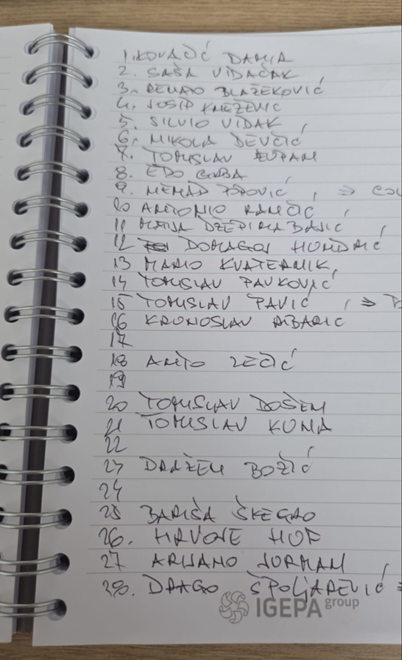 1. KOVAČIĆ DAMJA
2. SAŠA VIDAČAK
3. RENATO BLAŽEKOVIĆ
4. JOSIP KNEŽEVIĆ
5. SILVIO VIDAK
6. NIKOLA DEVČIĆ
7. TOMISLAV ŽUPAN
8. EDO
9. NENAD POPOVIĆ , ⇒
10 ANTONIO RAMČIĆ
11 MATIJA
12 DOMAGOJ HUNDRIĆ
13 MARIO KVATERNIK
14 TOMISLAV PAVKOVIĆ
15 TOMISLAV PAVIĆ , ⇒
16 KRUNOSLAV RIBARIĆ
17
18 ANTO ZEČIĆ
19
20 TOMISLAV DOŠEN
21 TOMISLAV KUNA
22
23 DRAŽEN BOŽIĆ
24
25 BARIŠA ŠKEGRO
26. HRVOJE HOP
27 ARIJANO JORMAN
28. DRAGO ŠPOLJAREVIĆ
IGEPA group